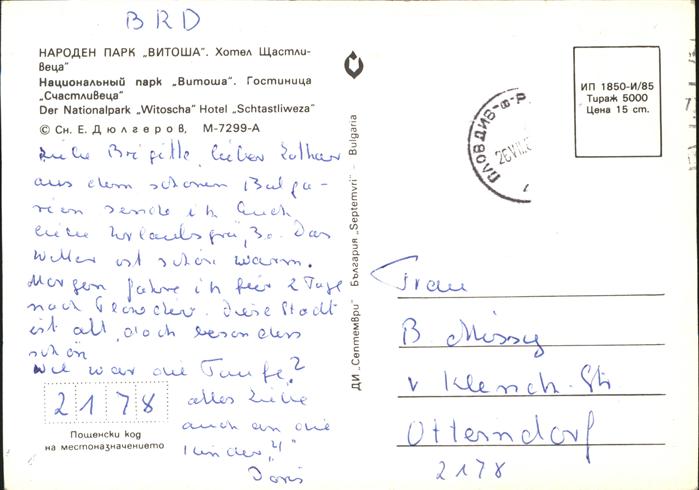 BRD
НАРОДЕН ПАРК „ВИТОША". Хотел Щастли-
веца"
Национальный парк „Витоша". Гостиница
„Счастливеца"
Der Nationalpark „Witoscha" Hotel „Schtastliweza"
© Сн. Е. Дюлгеров, М-7299-А
Liebe Brigitte, lieber Lothar
aus dem schönen Bulga-
rien sende ich Euch
liebe Urlaubsgrüße. Das
Wetter ist schön warm.
Morgen fahre ich für 2 Tage
nach Plowdiw. Diese Stadt
ist alt, doch besonders
schön
Wie war die Taufe?
alles Liebe
auch an die
Kinder
Doris
2178
Пощенски код
на местоназначението
ДИ „Септември" България „Septemvri" – Bulgaria
ПЛОВДИВ
ИП 1850-И/85
Тираж 5000
Цена 15 ст.
Frau
B
v
Str
Otterndorf
2178